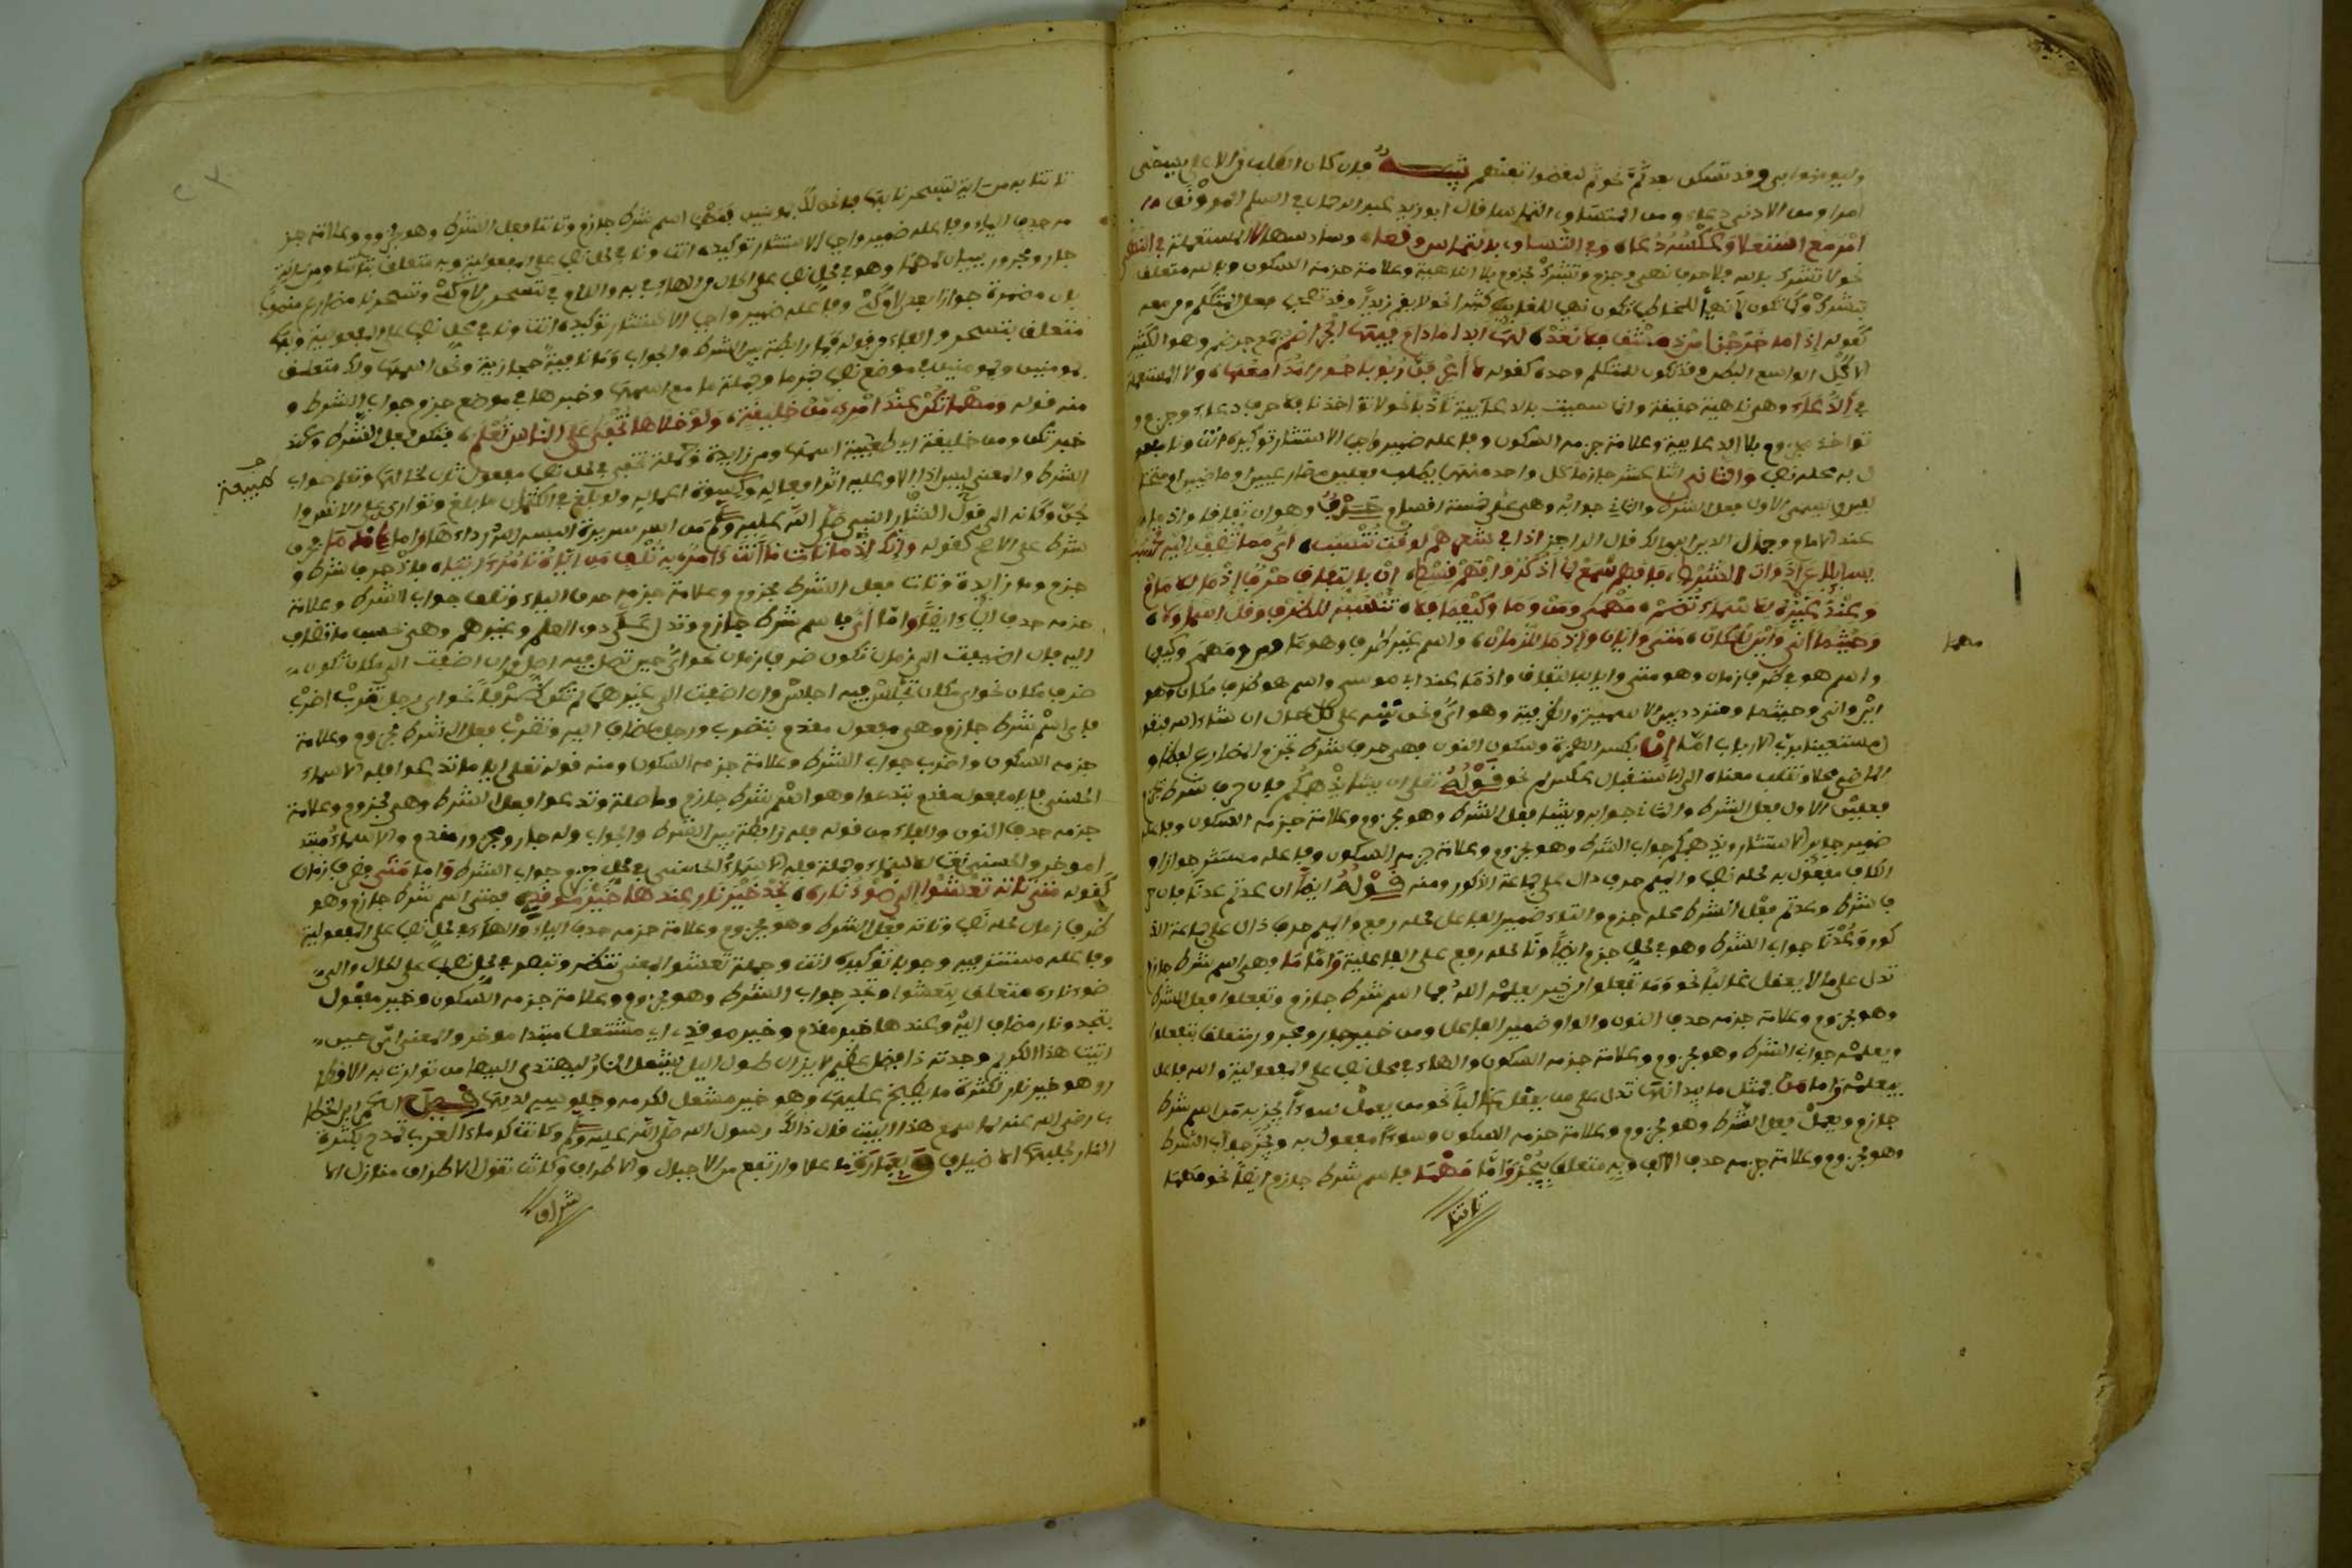 وليوفوا بى وقد تسكن بعد ثم نحو ثم ليقضوا تفثهم تنبيه فان كان الطلب من الاعلى يسمى
امرا ومن الادنى دعاء ومن المتساوى التماسا قال ابو زيد عبد الرحمان في السلم المرونق
امر مع استعلا وعكسه دعا وفي التساوى فالتماس وقعا وسادسها لا المستعملة في النهي
نحو لا تشرك بالله فلا حرف نهي وجزم وتشرك مجزوم بلا الناهية وعلامة جزمه السكون وبالله متعلق
بتشرك وكما تكون لا نهيا للمخاطب تكون نهي للغايب كثيرا نحو لا يقم زيد وقد تصحب فعل المتكلم ومن معه
كقوله اذا ما خرجنا من دمشق فلا نعد لها ابدا ما دام فيها الجراضم
الاكل الواسع البطن وقد تكون للمتكلم وحده كقوله لا اعرفن ربربا حورا مدامعها ولا المستعملة
في الدعاء وهي ناهية حقيقة وانما سميت بالدعائية تادبا نحو لا تواخذنا فلا حرف دعاء وجزم و
تواخذ مجزوم بلا الدعائية وعلامة جزمه السكون وفاعله ضمير واجب الاستتار توكيده انت ونا مفعو
ل به محله نصب والثاني اثنا عشر جازما كل واحد منها يطلب فعلين مضارعيين او ماضيين او مختلـ
فين يسمى الاول فعل الشرط والثاني جوابه وهي على خمسة اقسام حرف وهو ان باتفاق واذما
عند الامام وجمال الدين ابن مالك قال الراجز
وحيثما انى واين للمكان متى وايان واذما للزمان واسم غير ظرف وهو ما ومن ومهمى وكيفما
مهما
واسم هو ظرف زمان وهو متى وايان باتفاق واذما عند ابى موسى واسم هو ظرف مكان وهو
اين وانى وحيثما ومتردد بين الاسمية والظرفية وهو اي ونحن نبينه على كل حال ان شاء الله فنقو
ل مستعينا برب الارباب اما ان بكسر الهمزة وسكون النون فهي حرف شرط تجزم المضارع لفظا و
الماضي محلا وتقلب معناه الى الاستقبال عكس لم نحو قوله تعلى ان يشا يذهبكم فان حرف شرط تجزم
فعلين الاول فعل الشرط والثاني جوابه ويشا فعل الشرط وهو مجزوم وعلامة جزمه السكون وفاعله
ضمير جايز الاستتار ويذهبكم جواب الشرط وهو مجزوم وعلامة جزمه السكون وفاعله مستتر جوازا و
الكاف مفعول به محله نصب والميم حرف دال على جماعة الذكور ومنه قوله ايضا ان عدتم عدنا فان حر
ف شرط وعدتم فعل الشرط محله جزم والتاء ضمير الفاعل محله رفع والميم حرف دال على جماعة الذ
كور وعدنا جواب الشرط وهو في محل جزم ايضا ونا محله رفع على الفاعلية واما ما فهي اسم شرط جازم
تدل على ما لا يعقل غالبا نحو وما تفعلوا من خير يعلمه الله فما اسم شرط جازم وتفعلوا فعل الشرط
وهو مجزوم وعلامة جزمه حذف النون والواو ضمير الفاعل ومن خير جار ومجرور متعلق بتفعلوا
ويعلمه جواب الشرط وهو مجزوم وعلامة جزمه السكون والهاء في محل نصب على المفعولية والله فاعل
بيعلمه واما من فمثل ما بيد انها تدل على من يعقل غالبا نحو من يعمل سوءا يجز به فمن اسم شرط
جازم ويعمل فعل الشرط وهو مجزوم وعلامة جزمه السكون وسوءا مفعول به ويجز جواب الشرط
وهو مجزوم وعلامة جزمه حذف الالف وبه متعلق بيجز واما مهما فاسم شرط جازم ايضا نحو مهما
تاتنا
تاتنا به من اية لتسحرنا بها فما نحن لك بمومنين فمهما اسم شرط جازم وتاتنا فعل الشرط وهو مجزوم وعلامة جز
مه حذف الياء وفاعله ضمير واجب الاستتار توكيده انت ونا في محل نصب على المفعولية وبه متعلق بتاتنا ومن اية
جار ومجرور بيان لمهما وهو في محل نصب على الحال من الهاء في به واللام في لتسحر لام كي وتسحرنا مضارع منصوب
بان مضمرة جوازا بعد لام كي وفاعله ضمير واجب الاستتار توكيده انت ونا في محل نصب على المفعولية وبها
متعلق بتسحر والفاء من قوله فما رابطة بين الشرط والجواب وما نافية حجازية ونحن اسمها ولك متعلق
بمومنين وبمومنين في موضع نصب خبر ما وجملة ما مع اسمها وخبرها في موضع جزم جواب الشرط و
منه قوله ومهما تكن عند امرئ من خليقة ولو خالها تخفى على الناس تعلم فتكن فعل الشرط وعند
خبر تكن ومن خليقة اي طبيعة اسمها ومن زايدة وجملة تخفى في محل نصب مفعول ثان لخالها وتعلم جواب
طبيعة
شرط على الاصح كقوله وانك اذ ما تات ما انت ءامر به تلف من اياه تامر ءاتيا فاذ حرف شرط و
جزم وما زايدة وتات فعل الشرط مجزوم وعلامة جزمه حذف الياء وتلف جواب الشرط وعلامة
جزمه حذف الياء ايضا واما اي فاسم شرط جازم وتدل على ذوى العلم وغيرهم وهي بحسب ما تضاف
اليه فان اضيفت الى زمان تكون ظرف زمان نحو اي حين تصل فيه اصل وان اضيفت الى مكان تكون
ظرف مكان نحو اي مكان تجلس فيه اجلس وان اضيفت الى غيرهما لم تكن ظرفا نحو اي رجل تضرب اضرب
فاي اسم شرط جازم وهي مفعول مقدم بتضرب ورجل مضاف اليه وتضرب فعل الشرط مجزوم وعلامة
جزمه السكون واضرب جواب الشرط وعلامة جزمه السكون ومنه قوله تعلى ايا ما تدعوا فله الاسماء
الحسنى فايا مفعول مقدم بتدعوا وهو اسم شرط جازم وما صلة وتدعوا فعل الشرط وهو مجزوم وعلامة
جزمه حذف النون والفاء من قوله فله رابطة بين الشرط والجواب وله جار ومجرور خبر مقدم والاسماء مبتد
ا موخر والحسنى نعت للاسماء وجملة فله الاسماء الحسنى في محل جزم جواب الشرط واما متى فظرف زمان
كقوله متى تاته تعشوا الى ضوء ناره تجد خير نار عندها خير موقد فمتى اسم شرط جازم وهو
ظرف زمان محله نصب وتاته فعل الشرط وهو مجزوم وعلامة جزمه حذف الياء والهاء في محل نصب على المفعولية
وفاعله مستتر فيه وجوبا توكيده انت وجملة تعشوا المعنى تنظر فهو في محل نصب على الحال والى
ضوء ناره متعلق بتعشوا وتجد جواب الشرط وهو مجزوم وعلامة جزمه السكون وخير مفعول
بتجد ونار مضاف اليه وعندها خبر مقدم وخير موقد اي مشتعل مبتدا موخر والمعنى اي حين
اتيت هذا الكريم وجدته ذا فضل عظيم لا يزال طول الليل يشعل النار ليهتدى اليها من توارت به الاقطا
ر وهو خير نار لكثرة ما يطبخ عليها وهو خير مشعل لكرمه وجلوسه لديها
ب رضي الله عنه لما سمع هذا البيت قال ذاك رسول الله صلى الله عليه وسلم وكانت كرماء العرب تمدح بكثرة
شراف